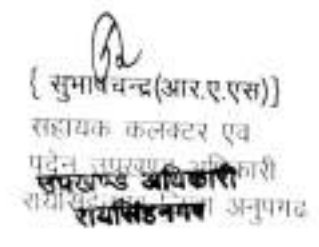 { सुभाषचन्द्र(आर.ए.एस)]
सहायक कलक्टर एवं
पदेन उपखण्ड अधिकारी
उपखण्ड अधिकारी
रायसिंहनगर जिला अनुपगढ
रायसिंहनगर